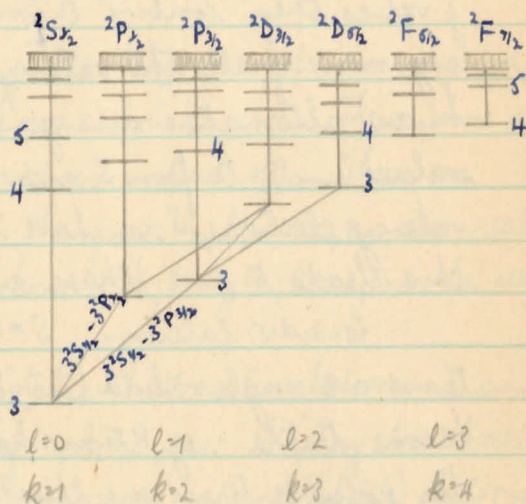 ²S½ ²P½ ²P3/2 ²D3/2 ²D5/2 ²F5/2 ²F7/2
5 4 5
4 4 3 4
3
3²S½-3²P½
3²S½-3²P3/2
3
l=0 l=1 l=2 l=3
k=1 k=2 k=3 k=4